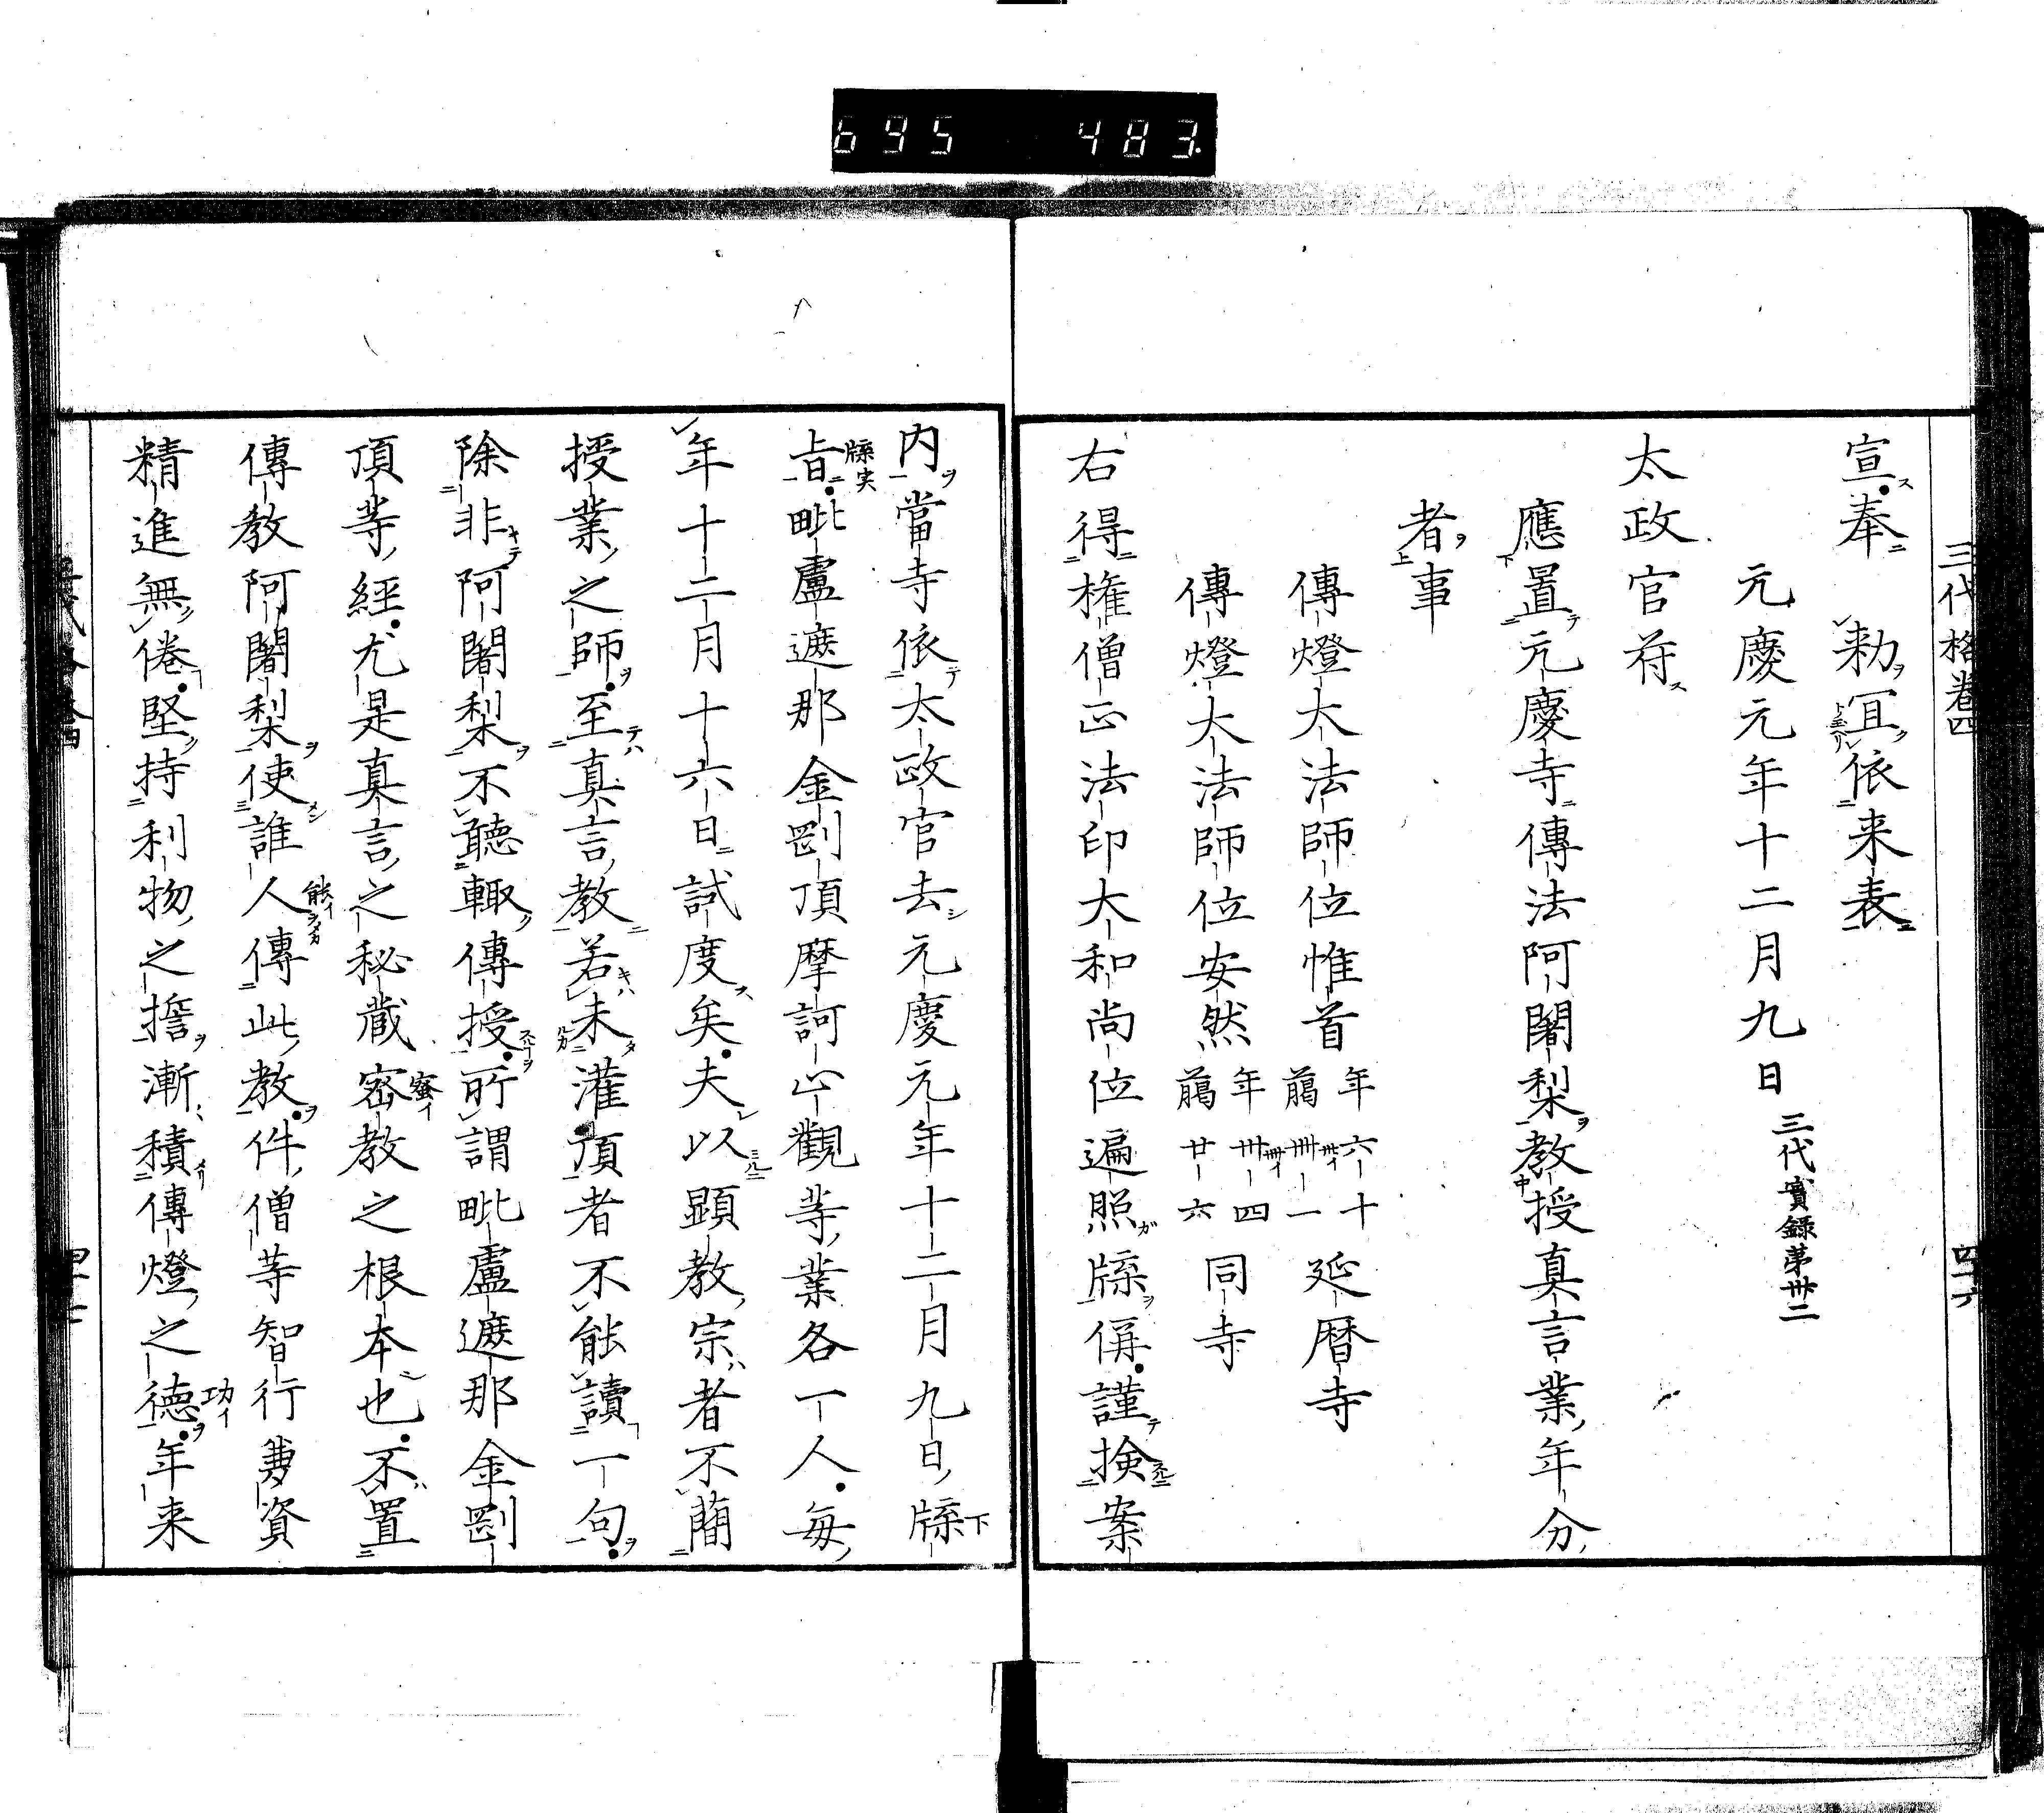 695 483
三代格卷四 四十六
宣奉 勅冝依来表
元慶元年十二月九日 三代實録第卅二
太政官苻
應置元慶寺傳法阿闍梨教授真言業年分
者事
傳燈大法師位惟首 年六十 﨟卌一 延暦寺
傳燈大法師位安然 年卌四 﨟廿六 同寺
右得権僧正法印大和尚位遍照牒偁謹検案
内當寺依太政官去元慶元年十二月九日牒
旨毗盧遮那金剛頂摩訶止觀等業各一人毎
年十二月十六日試度矣夫以顕教宗者不蕳
授業之師至真言教若未灌頂者不能讀一句
除非阿闍梨不聴輙傳授所謂毗盧遮那金剛
頂等経尤是真言之秘蔵密教之根本也不置
傳教阿闍梨使誰人傳此教件僧等智行兼資
精進無倦堅持利物之擔漸積傳燈之德年来